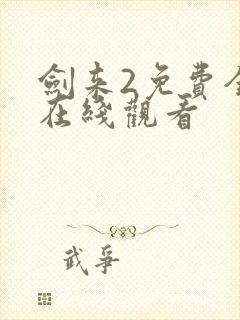 劍来2免費全
在綫觀看
武爭